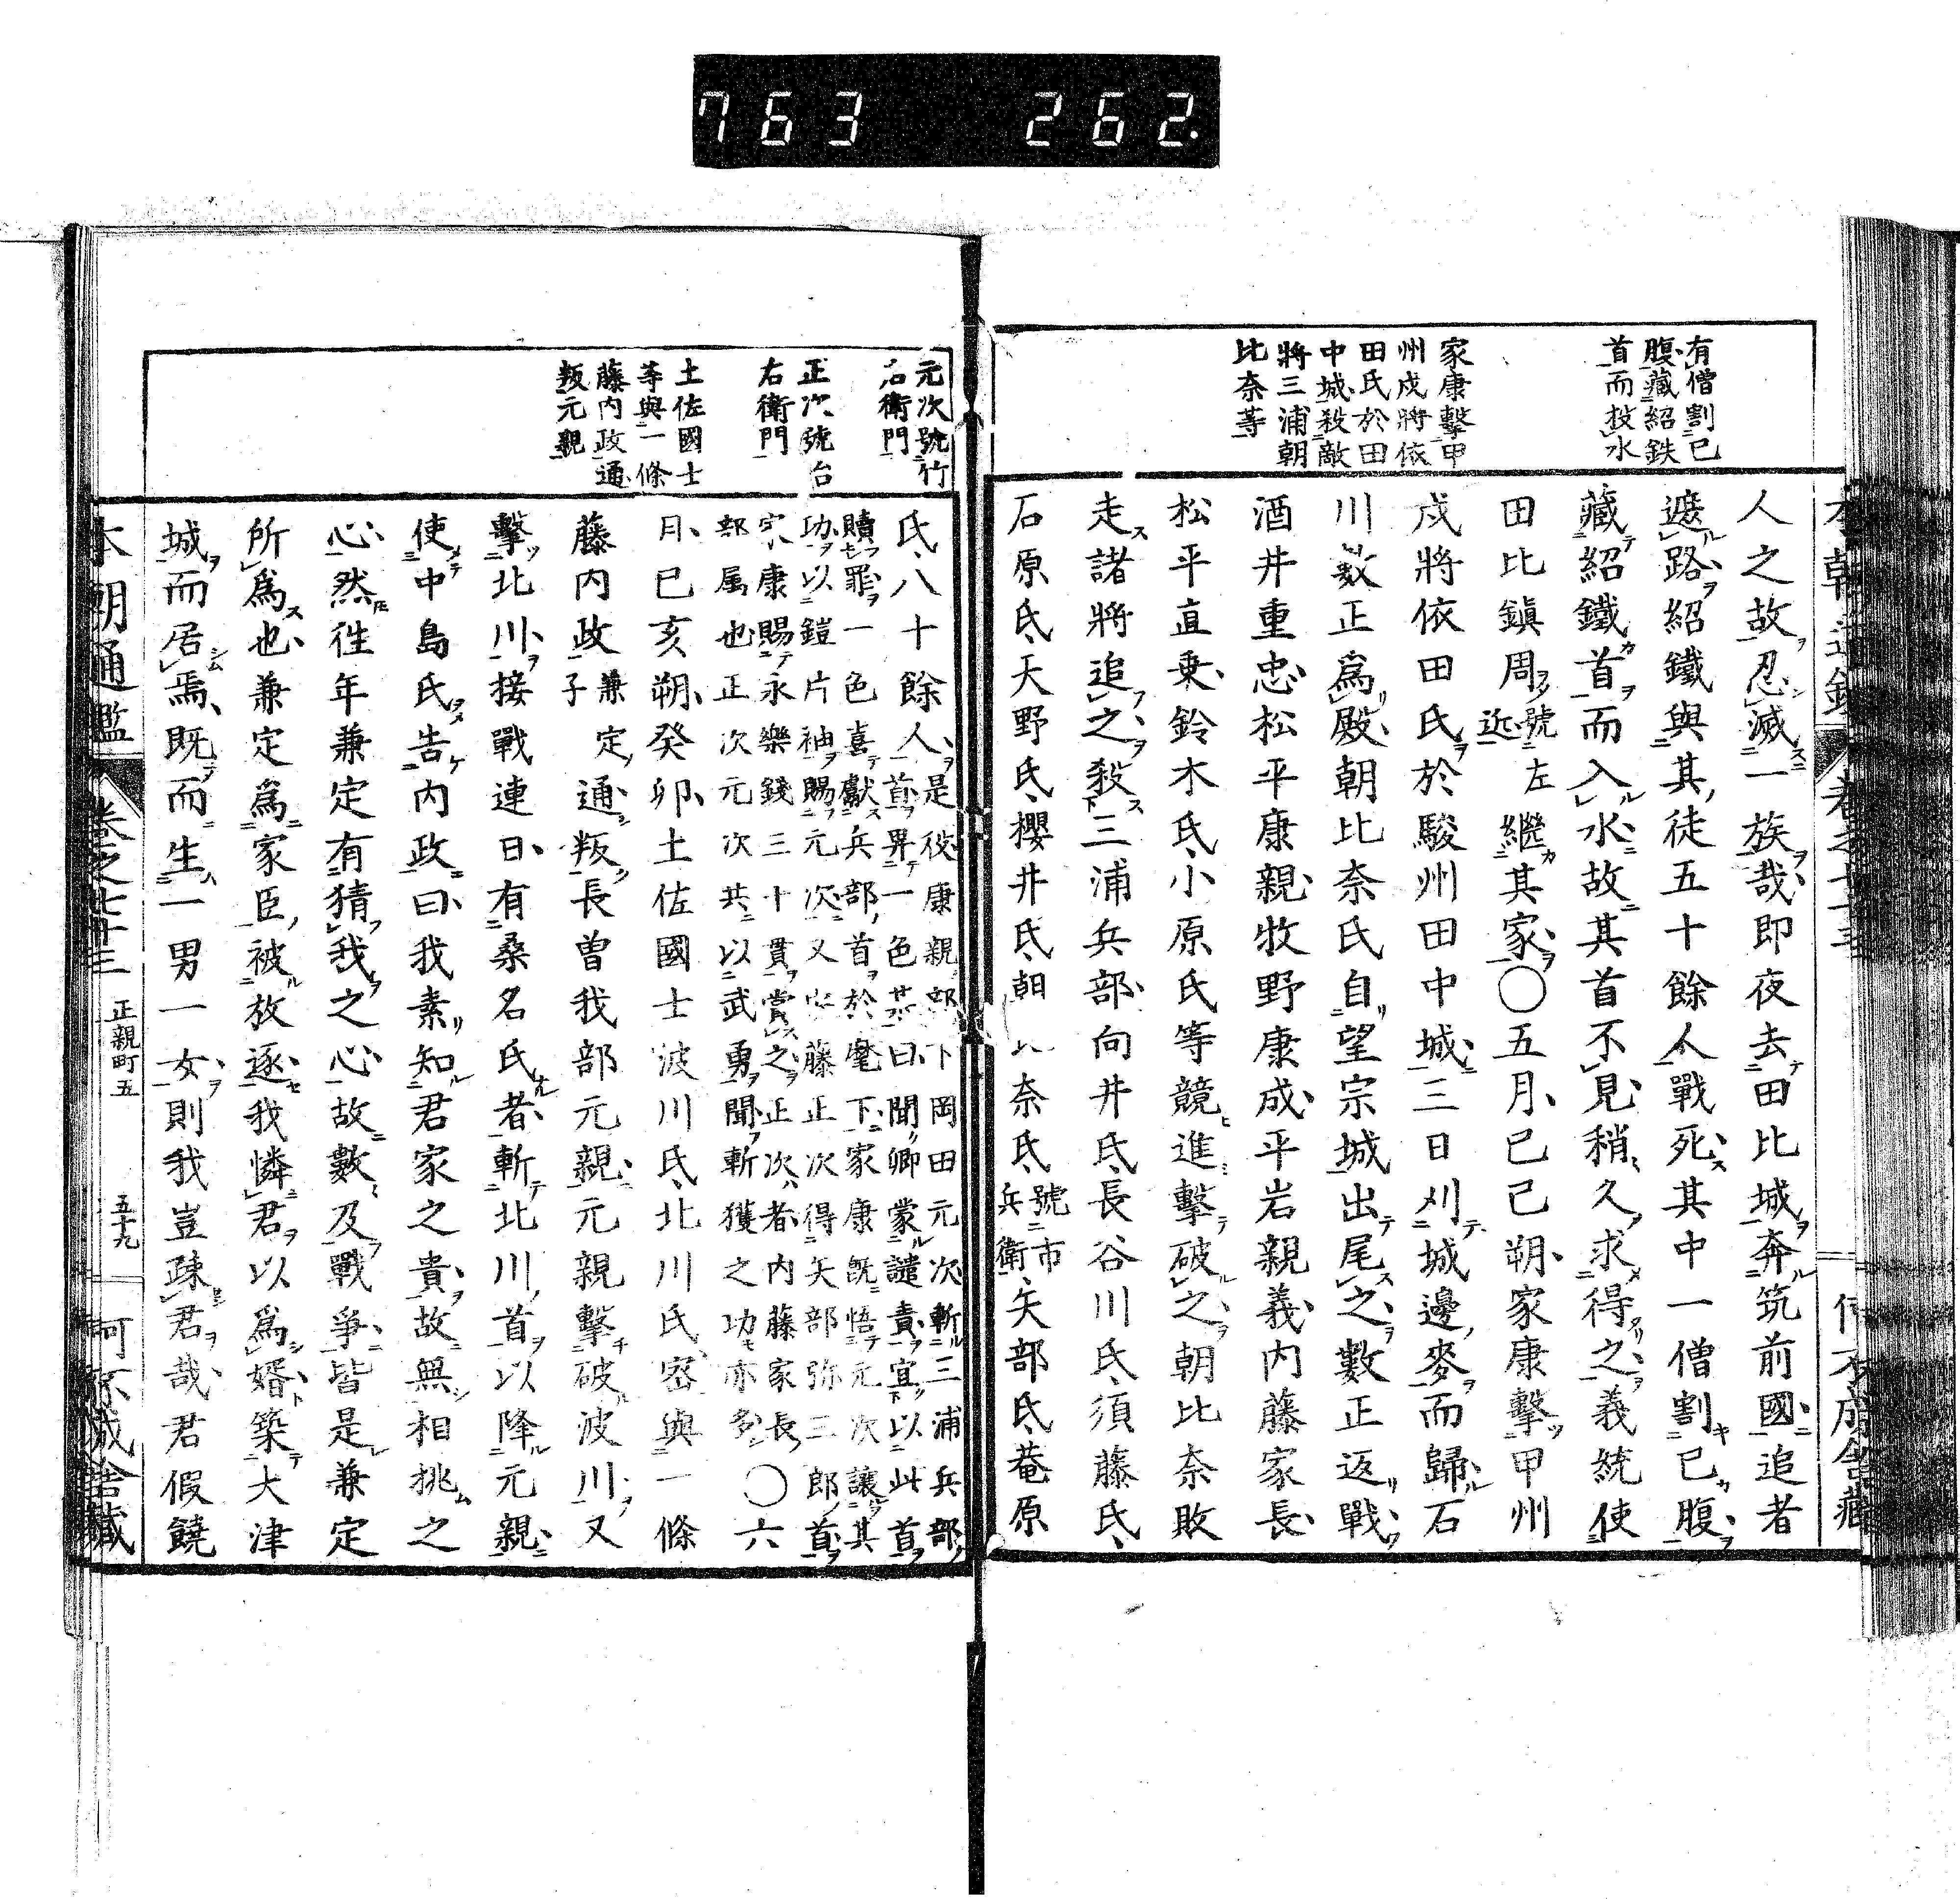 763 262.
有僧割己
腹藏紹鉄
首而投水
家康擊甲
州戍將依
田氏於田
中城殺敵
將三浦朝
比奈等
人之故忍滅一族哉即夜去田比城奔筑前國追者
遮路紹鐵與其徒五十餘人戰死其中一僧割己腹
藏紹鐵首而入水故其首不見稍久求得之義統使
田比鎭周號左近繼其家〇五月己巳朔家康擊甲州
戍將依田氏於駿州田中城三日刈城邊麥而歸石
川數正爲殿朝比奈氏自望宗城出尾之數正返戰
酒井重忠松平康親牧野康成平岩親義內藤家長
松平直乗鈴木氏小原氏等競進擊破之朝比奈敗
走諸將追之殺三浦兵部向井氏長谷川氏須藤氏
石原氏天野氏櫻井氏朝比奈氏號市兵衛矢部氏菴原
元次號竹
右衛門
正次號台
右衛門
土佐國士
等與一條
藤内政通
叛元親
氏八十餘人是役康親部下岡田元次斬三浦兵部
首畀一色某曰聞卿蒙譴責宜以此首
贖罪一色喜獻兵部首於麾下家康既悟元次讓其
功以鎧片袖賜元次又安藤正次得矢部弥三郎首
家康賜永樂錢三十貫賞之正次者内藤家長
部属也正次元次共以武勇聞斬獲之功亦多〇六
月己亥朔癸卯土佐國士波川氏北川氏密與一條
藤内政兼定子通叛長曽我部元親元親擊破波川又
擊北川接戰連日有桑名氏者斬北川首以降元親
使中島氏告内政曰我素知君家之貴故無相挑之
心然往年兼定有猜我之心故數及戰爭皆是兼定
所爲也兼定爲家臣被放逐我憐君以爲婿築大津
城而居焉既而生一男一女則我豈疎君哉君假饒
本朝通鑑 卷之七十三 正親町五 五十九